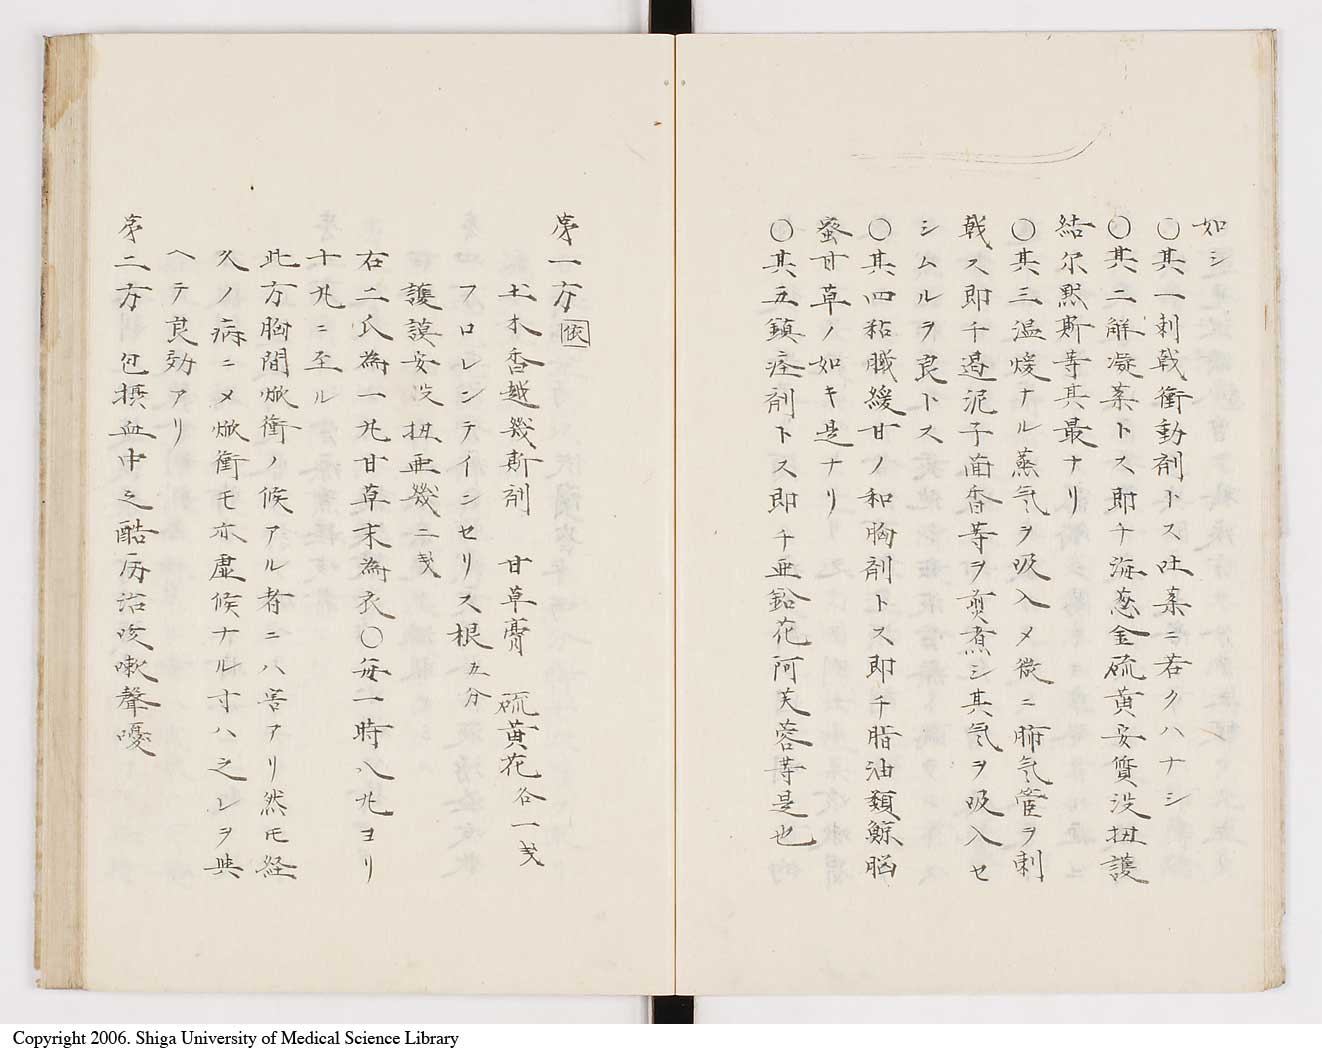 如シ
○其一刺戟衝動剤トス吐薬ニ若クハナシ
○其二解凝薬トス即チ海葱金硫黄安質没扭護
結尓黙斯等其最ナリ
○其三温煖ナル蒸気ヲ吸入メ微ニ肺気管ヲ刺
戟ス即チ過泥子茴香等ヲ煎煮シ其気ヲ吸入セ
シムルヲ良トス
○其四粘臓緩甘ノ和胸剤トス即チ脂油類鯨脳
蚤甘草ノ如キ是ナリ
○其五鎮痙剤トス即チ亜鉛花阿芙蓉等是也
第一方 依
土木香越幾斯剤 甘草膏 硫黄花 各一戔
フロレンテインセリス根 五分
護謨安没扭亜幾二戔
右二氏為一丸甘草末為衣○毎二時八丸ヨリ
十丸ニ至ル
此方胸間焮衝ノ候アル者ニハ害アリ然モ経
久ノ病ニメ焮衝モ亦虚候ナル寸ハ之レヲ与
ヘテ良効アリ
第二方 包摂血中之酷厉治咳嗽聲嗄
Copyright 2006. Shiga University of Medical Science Library